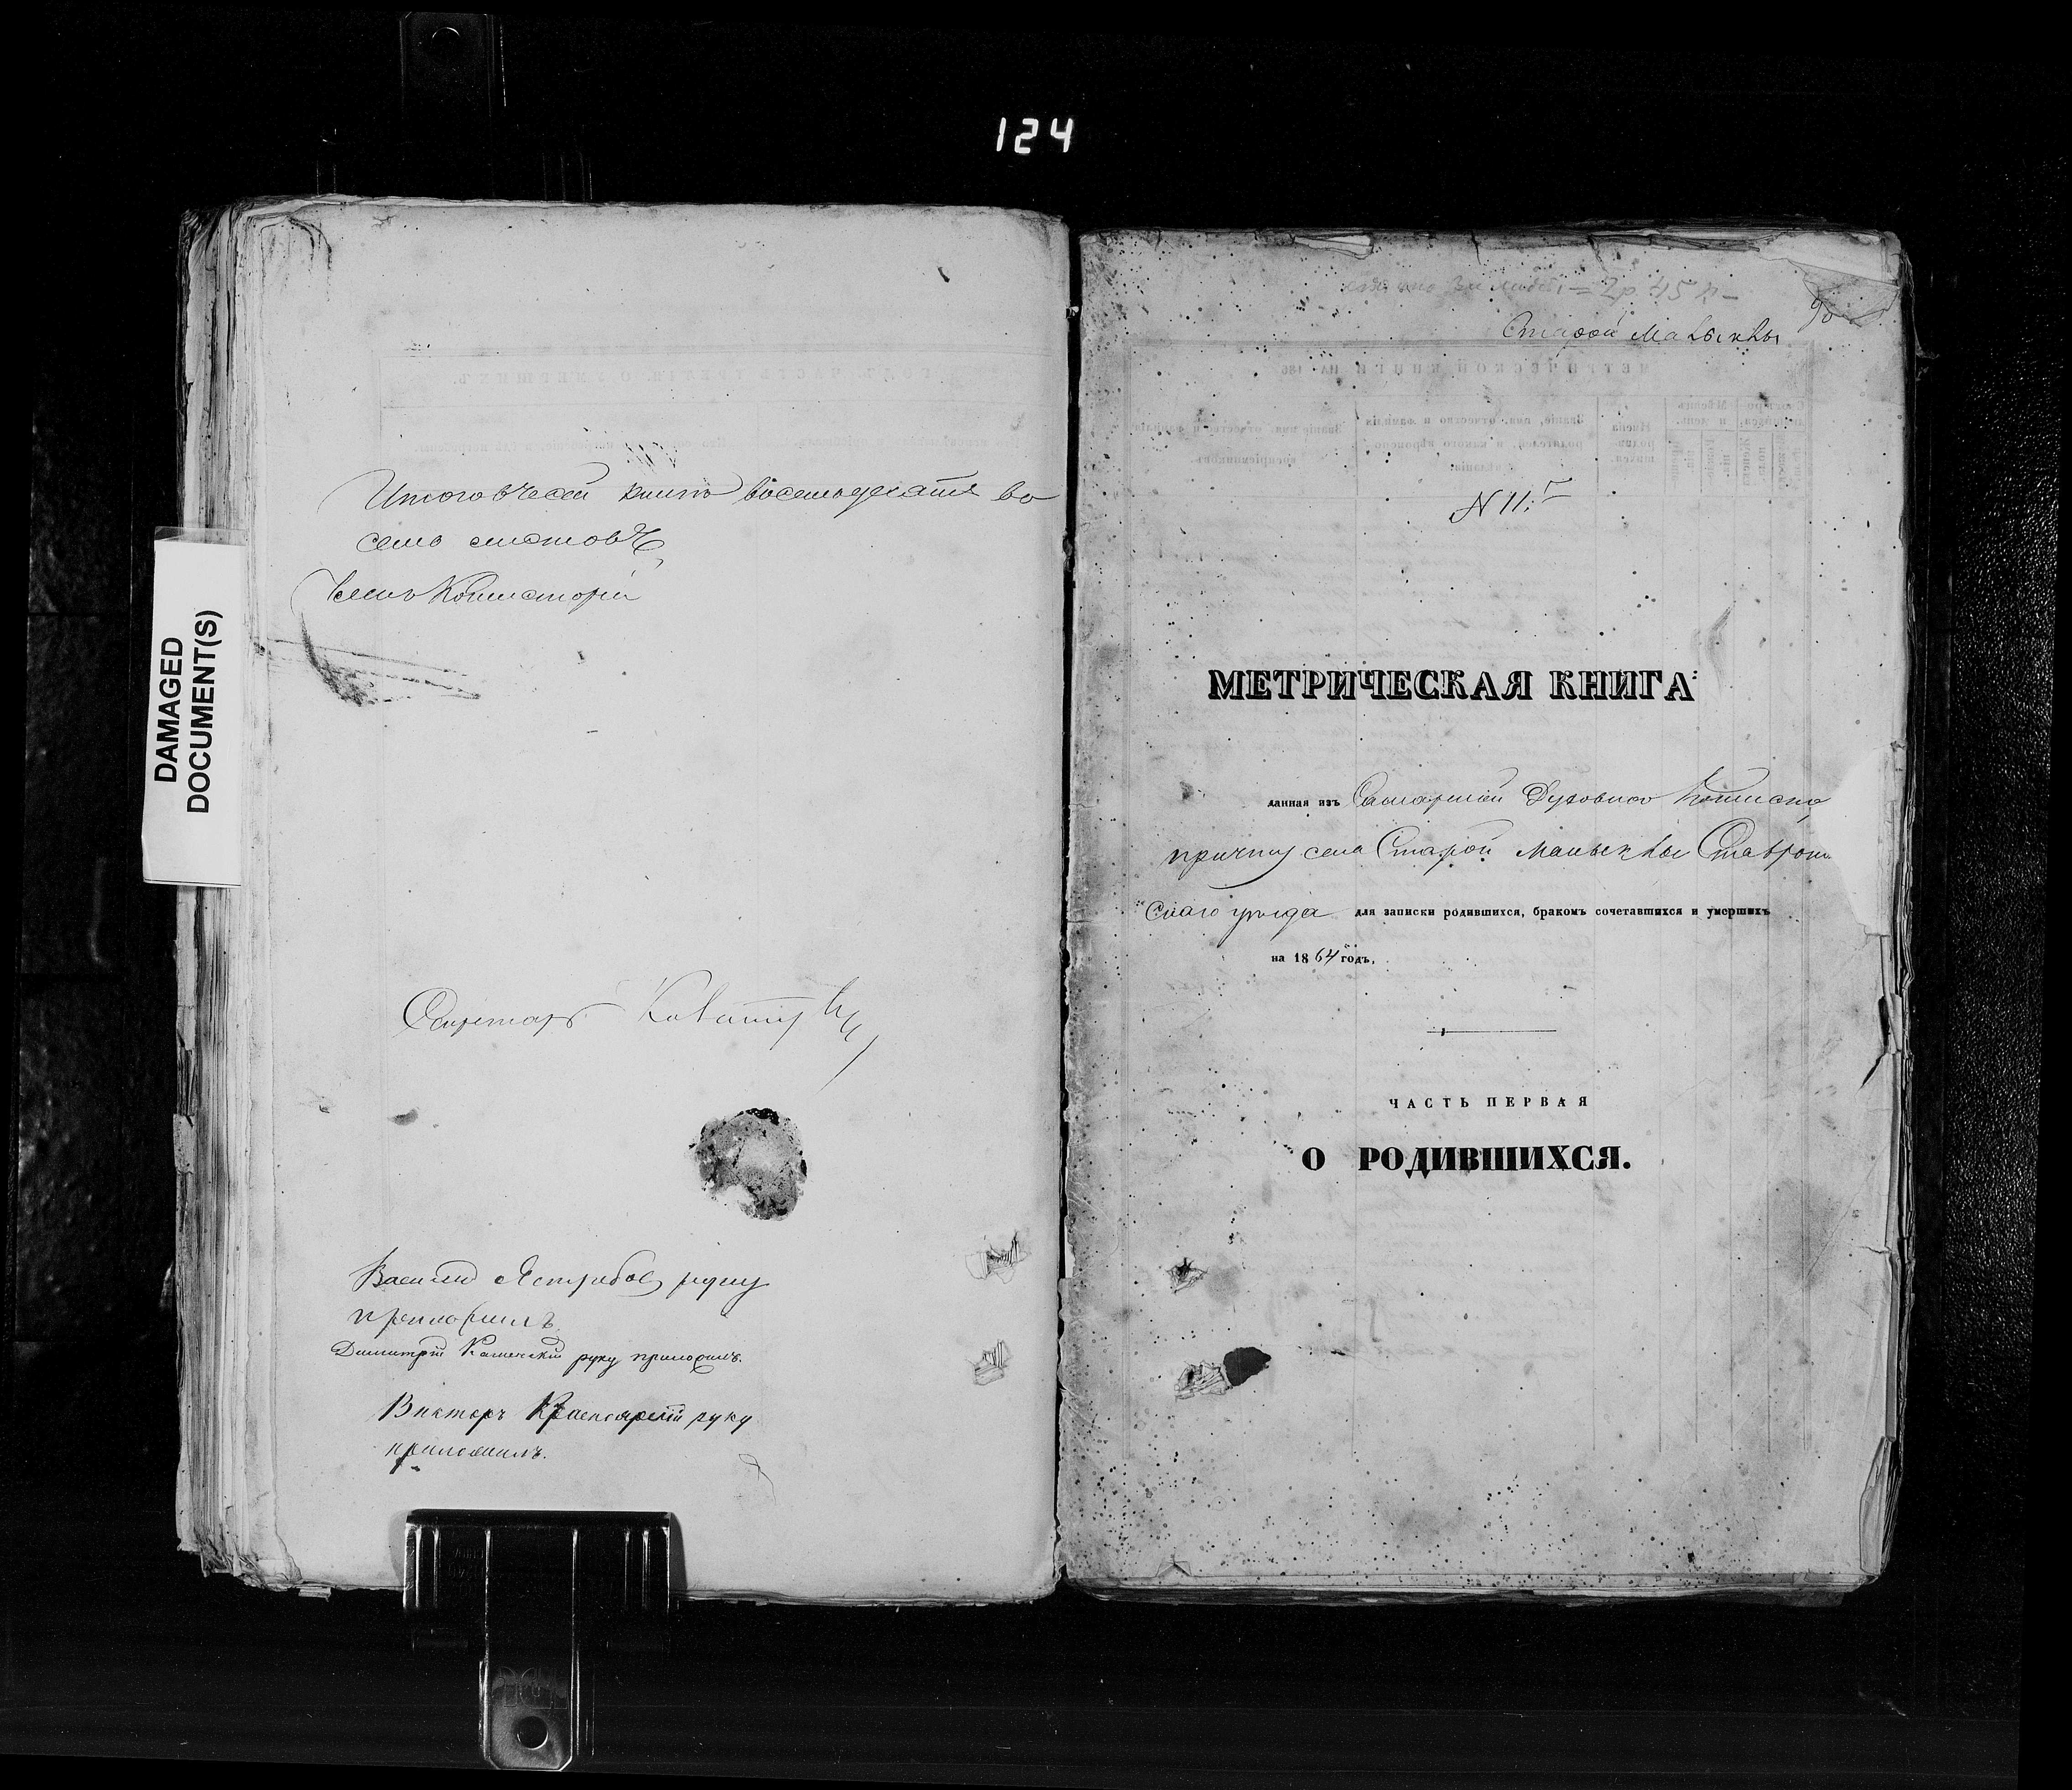 124
DAMAGED
DOCUMENT(S)
Итого в сей книге восемьдесятъ во
семь листовъ
Членъ Консисторіи
Секретарь
Василій Ястребовъ руку
приложилъ.
Димитрій Каменскій руку приложилъ.
Викторъ Красноярскій руку
приложилъ.
= 2 р 45 к -
90
Старой Маіыклы
N 11.
МЕТРИЧЕСКАЯ КНИГА
данная изъ Самарской Духовной Консисто
причту села Старой Маіыклы Ставропо
скаго уѣзда для записки родившихся, бракомъ сочетавшихся и умершихъ
на 1864 годъ.
ЧАСТЬ ПЕРВАЯ
О РОДИВШИХСЯ.